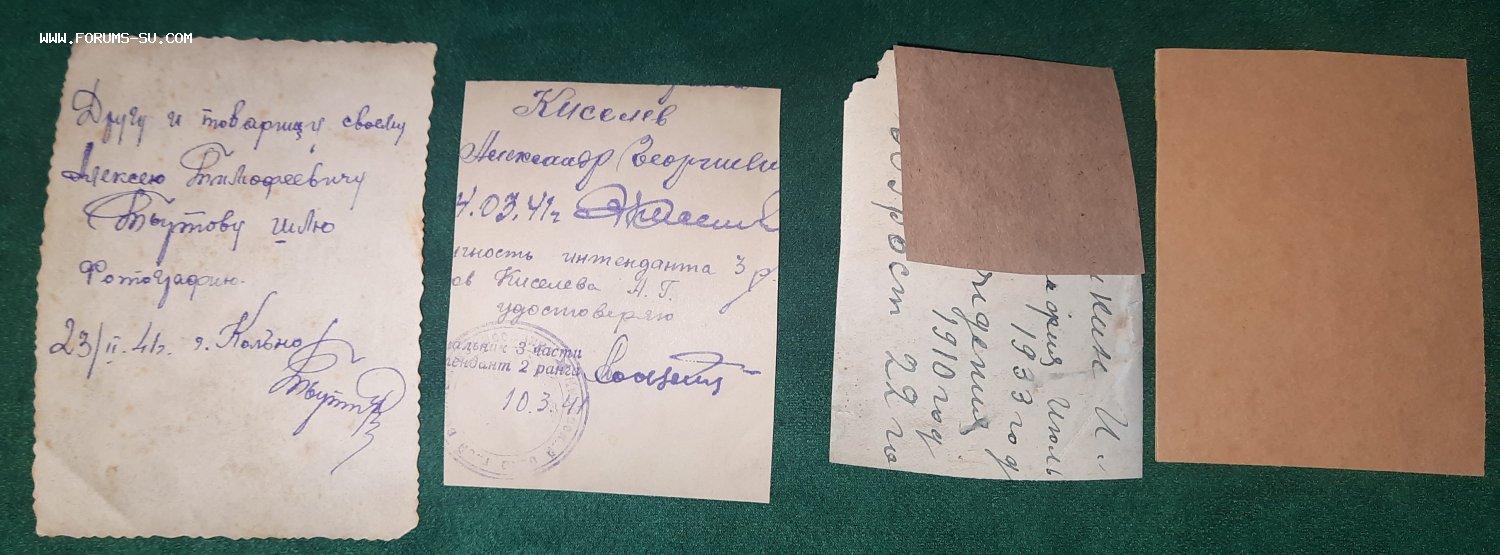 WWW.FORUMS-SU.COM
Другу и товарищу своему
Алексею Тимофеевичу
Тютову шлю
Фотографию.
23/II.41г. г. Кольно
Киселев
Александр Георгиеви
4.03.41г
чность интенданта 3 р
ов Киселева А. Г.
удостоверяю
альник 3 части
тендант 2 ранга
10.3.41
кин И.
фия Июль
1933 год
ждения
1910 год
возраст 22 го